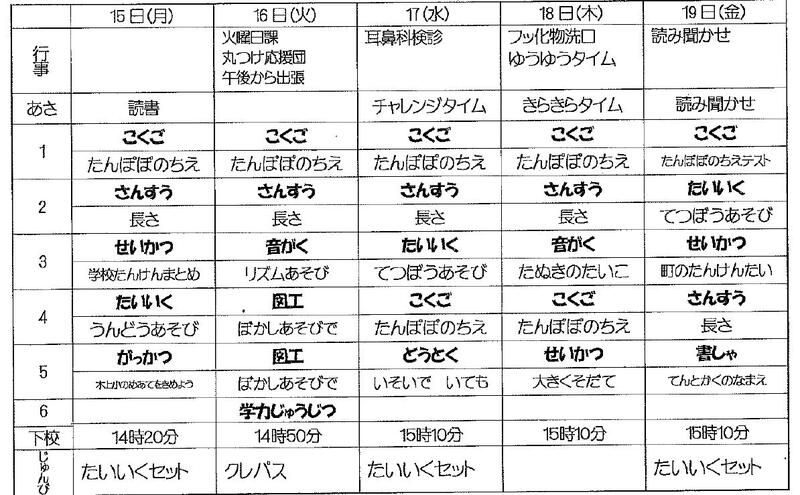 15日(月) 16日(火) 17(水) 18日(木) 19日(金)
行事 火曜日課 耳鼻科検診 フッ化物洗口 読み聞かせ
丸つけ応援団 ゆうゆうタイム
午後から出張
あさ 読書 チャレンジタイム きらきらタイム 読み聞かせ
1 こくご こくご こくご こくご こくご
たんぽぽのちえ たんぽぽのちえ たんぽぽのちえ たんぽぽのちえ たんぽぽのちえテスト
2 さんすう さんすう さんすう さんすう たいいく
長さ 長さ 長さ 長さ てつぼうあそび
3 せいかつ 音がく たいいく 音がく せいかつ
学校たんけんまとめ リズムあそび てつぼうあそび たぬきのたいこ 町のたんけんたい
4 たいいく 図工 こくご こくご さんすう
うんどうあそび ぼかしあそびで たんぽぽのちえ たんぽぽのちえ 長さ
5 がっかつ 図工 どうとく せいかつ 書しゃ
木上小のめあてをきめよう ぼかしあそびで いそいで いても 大きくそだて てんとかくのなまえ
6 学力じゅうじつ
下校 14時20分 14時50分 15時10分 15時10分 15時10分
じゅんび たいいくセット クレパス たいいくセット たいいくセット